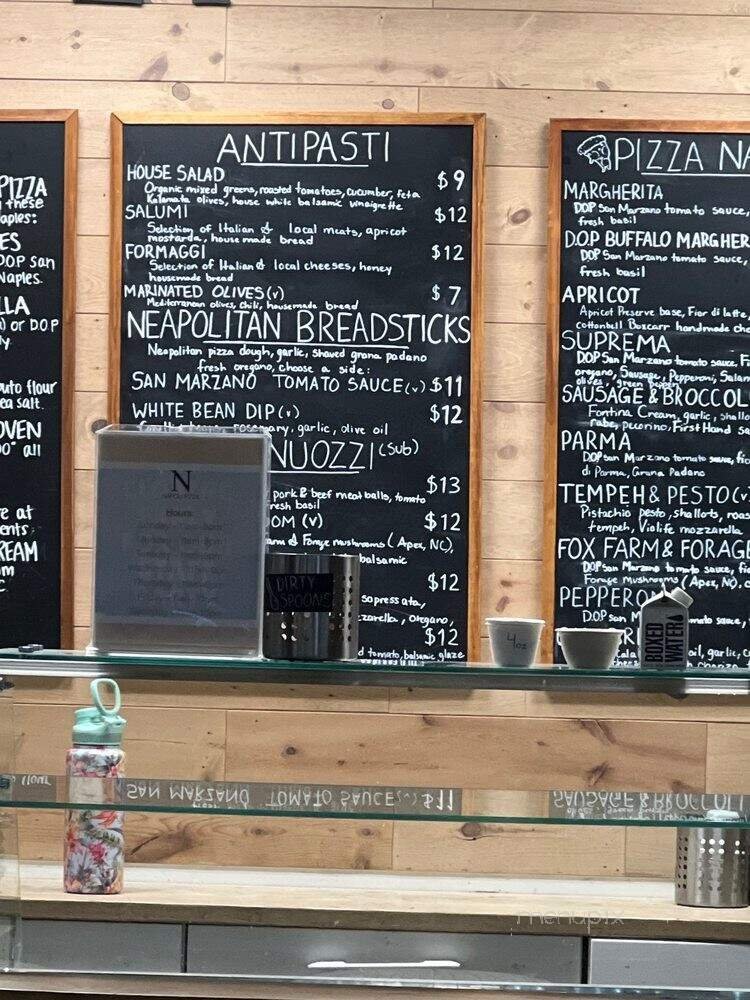 PIZZA
these
aples:
ES
DOP San
Naples.
LLA
) or D.O.P
ly
uto flour
ea salt.
OVEN
00° all
re at
ents.
REAM
om
C
ANTIPASTI
HOUSE SALAD $9
Organic mixed greens, roasted tomatoes, cucumber, feta
Kalamata olives, house white balsamic vinaigrette
SALUMI $12
Selection of Italian & local meats, apricot
mostarda, house made bread
FORMAGGI $12
Selection of Italian & local cheeses, honey
housemade bread
MARINATED OLIVES (v) $7
Mediterranean olives, Chili, housemade bread
NEAPOLITAN BREADSTICKS
Neapolitan pizza dough, garlic, shaved grana padano
fresh oregano, choose a side:
SAN MARZANO TOMATO SAUCE (v) $11
WHITE BEAN DIP (v) $12
rosemary, garlic, olive oil
NUOZZI (Sub)
$13
pork & beef meatballs, tomato
resh basil
OOM (v) $12
and Forage mushrooms (Apex, NC),
balsamic
$12
sopressata,
zzarella, oregano,
$12
d tomato, balsamic glaze
PIZZA NA
MARGHERITA
DOP San Marzano tomato sauce,
fresh basil
D.O.P BUFFALO MARGHER
DOP San Marzano tomato sauce,
fresh basil
APRICOT
Apricot Preserve base, Fior di latte,
cottonbell Boxcarr handmade che
SUPREMA
DOP San Marzano tomato sauce, Fi
oregano, Sausage, Pepperoni, Salam
olives, green pepper
SAUSAGE & BROCCOL
Fontina Cream, garlic, shallo
rabe, pecorino, First Hand sa
PARMA
DOP San Marzano tomato sauce, fio
di Parma, Grana Padano
TEMPEH & PESTO (v
Pistachio pesto, shallots, roas
tempeh, Violife mozzarella
FOX FARM & FORAGE
DOP San Marzano tomato sauce, fio
Forage mushrooms (Apex, NC),
PEPPERON
DOP San
omato sauce,
oil, garlic, c
N
NAPOLI PIZZA
Hours:
DIRTY
SPOONS
4oz
BOXED
WATER
SAN MARZANO TOMATO SAUCE (v) $11
SAUSAGE & BROCCOLI
menupix